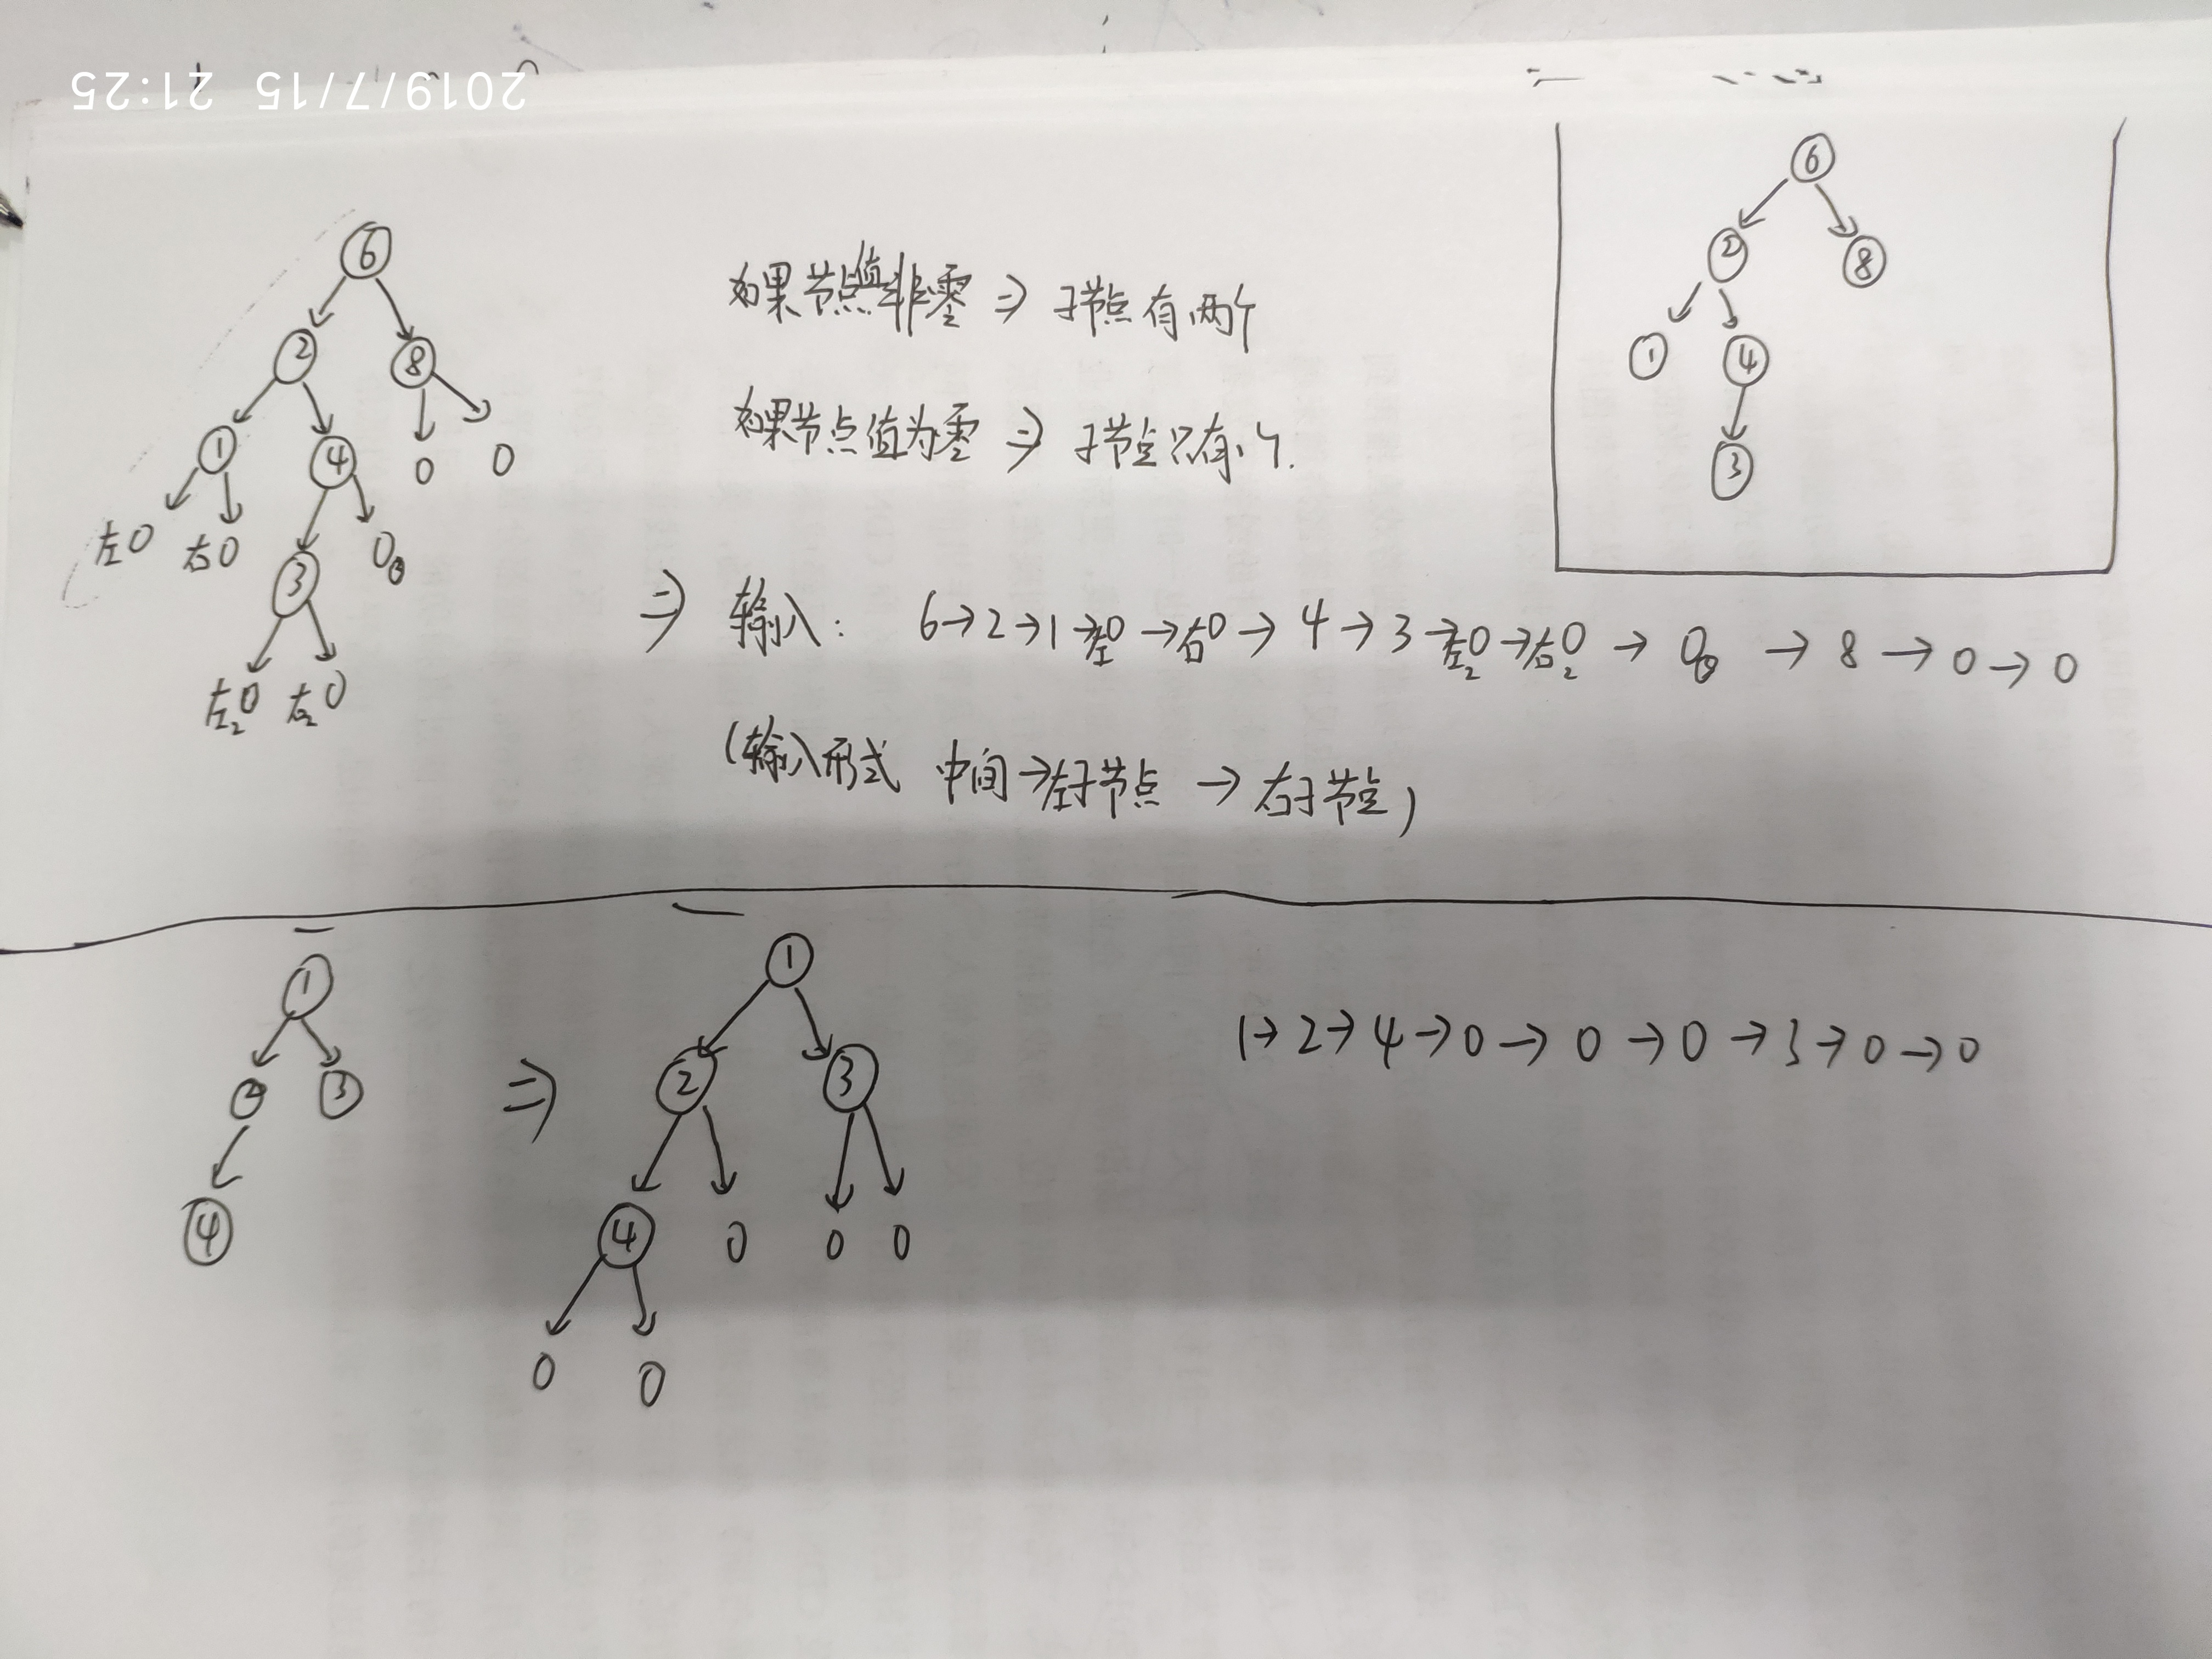 2019/7/15 21:25
6
2 8
1 4 0 0
左0 右0 3 0
左₂0 右₂0
如果节点值非零 ⇒ 子节点有两个
如果节点值为零 ⇒ 子节点只有
6
2 8
1 4
3
⇒ 输入: 6→2→1→左0→右0→4→3→左₂0→右₂0→0→8→0→0
(输入形式 中间→左子节点→右子节点)
1
2 3
4
⇒
1
2 3
4 0 0 0
0 0
1→2→4→0→0→0→3→0→0